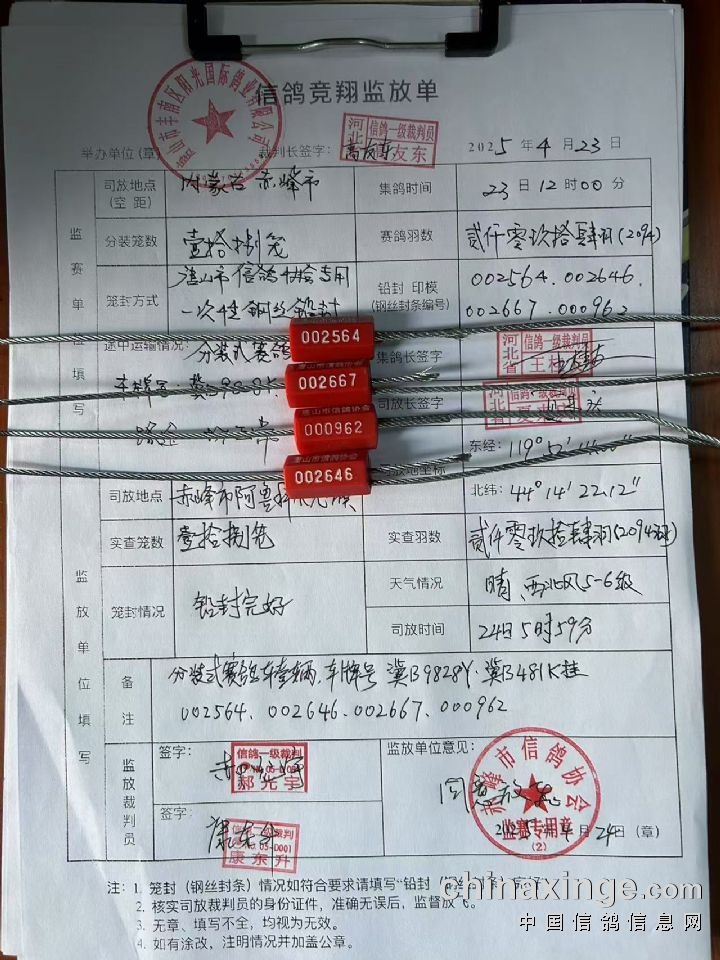 信鸽竞翔监放单
山市丰南区阳光国际鸽业有限公司
举办单位(章)
裁判长签字:
河北
信鸽一级裁判员
友东
2025年4月23日
监赛单位填写
司放地点(空距)
内蒙古 赤峰市
集鸽时间
23日12时00分
分装笼数
壹拾捌笼
赛鸽羽数
贰仟零玖拾肆羽(2094)
笼封方式
唐山市信鸽协会专用
一次性钢丝铅封
铅封 印模(钢丝封条编号)
002564.002646.
002667.000962
途中运输情况:
分装式赛鸽
002564
002667
唐山市信鸽协会
000962
唐山市信鸽协会
002646
集鸽长签字
河北省
信鸽一级裁判员
王
司放长签字
河北省
信鸽一级裁判员
夏
车牌号:
东经:119°
监放单位填写
司放地点
赤峰市阿鲁科尔沁旗
司放地坐标
北纬:44°14′22.12″
实查笼数
壹拾捌笼
实查羽数
贰仟零玖拾肆羽(2094羽)
笼封情况
铅封完好
天气情况
晴、西北风5-6级
司放时间
24日5时59分
备注
分装式赛鸽车壹辆.车牌号 冀B9828Y.冀B481K挂
002564、002646.002667、000962
监放裁判员
签字:
信鸽一级裁判
郝光宇
签字:
信鸽一级裁判
康东升
监放单位意见:
同意放飞
赤峰市信鸽协会
监赛专用章
(2)
2025年4月24日(章)
注:1. 笼封(钢丝封条)情况如符合要求请填写"铅封
2. 核实司放裁判员的身份证件,准确无误后,监督放飞。
3. 无章、填写不全,均视为无效。
4. 如有涂改,注明情况并加盖公章。
chinaxinge.com
中国信鸽信息网